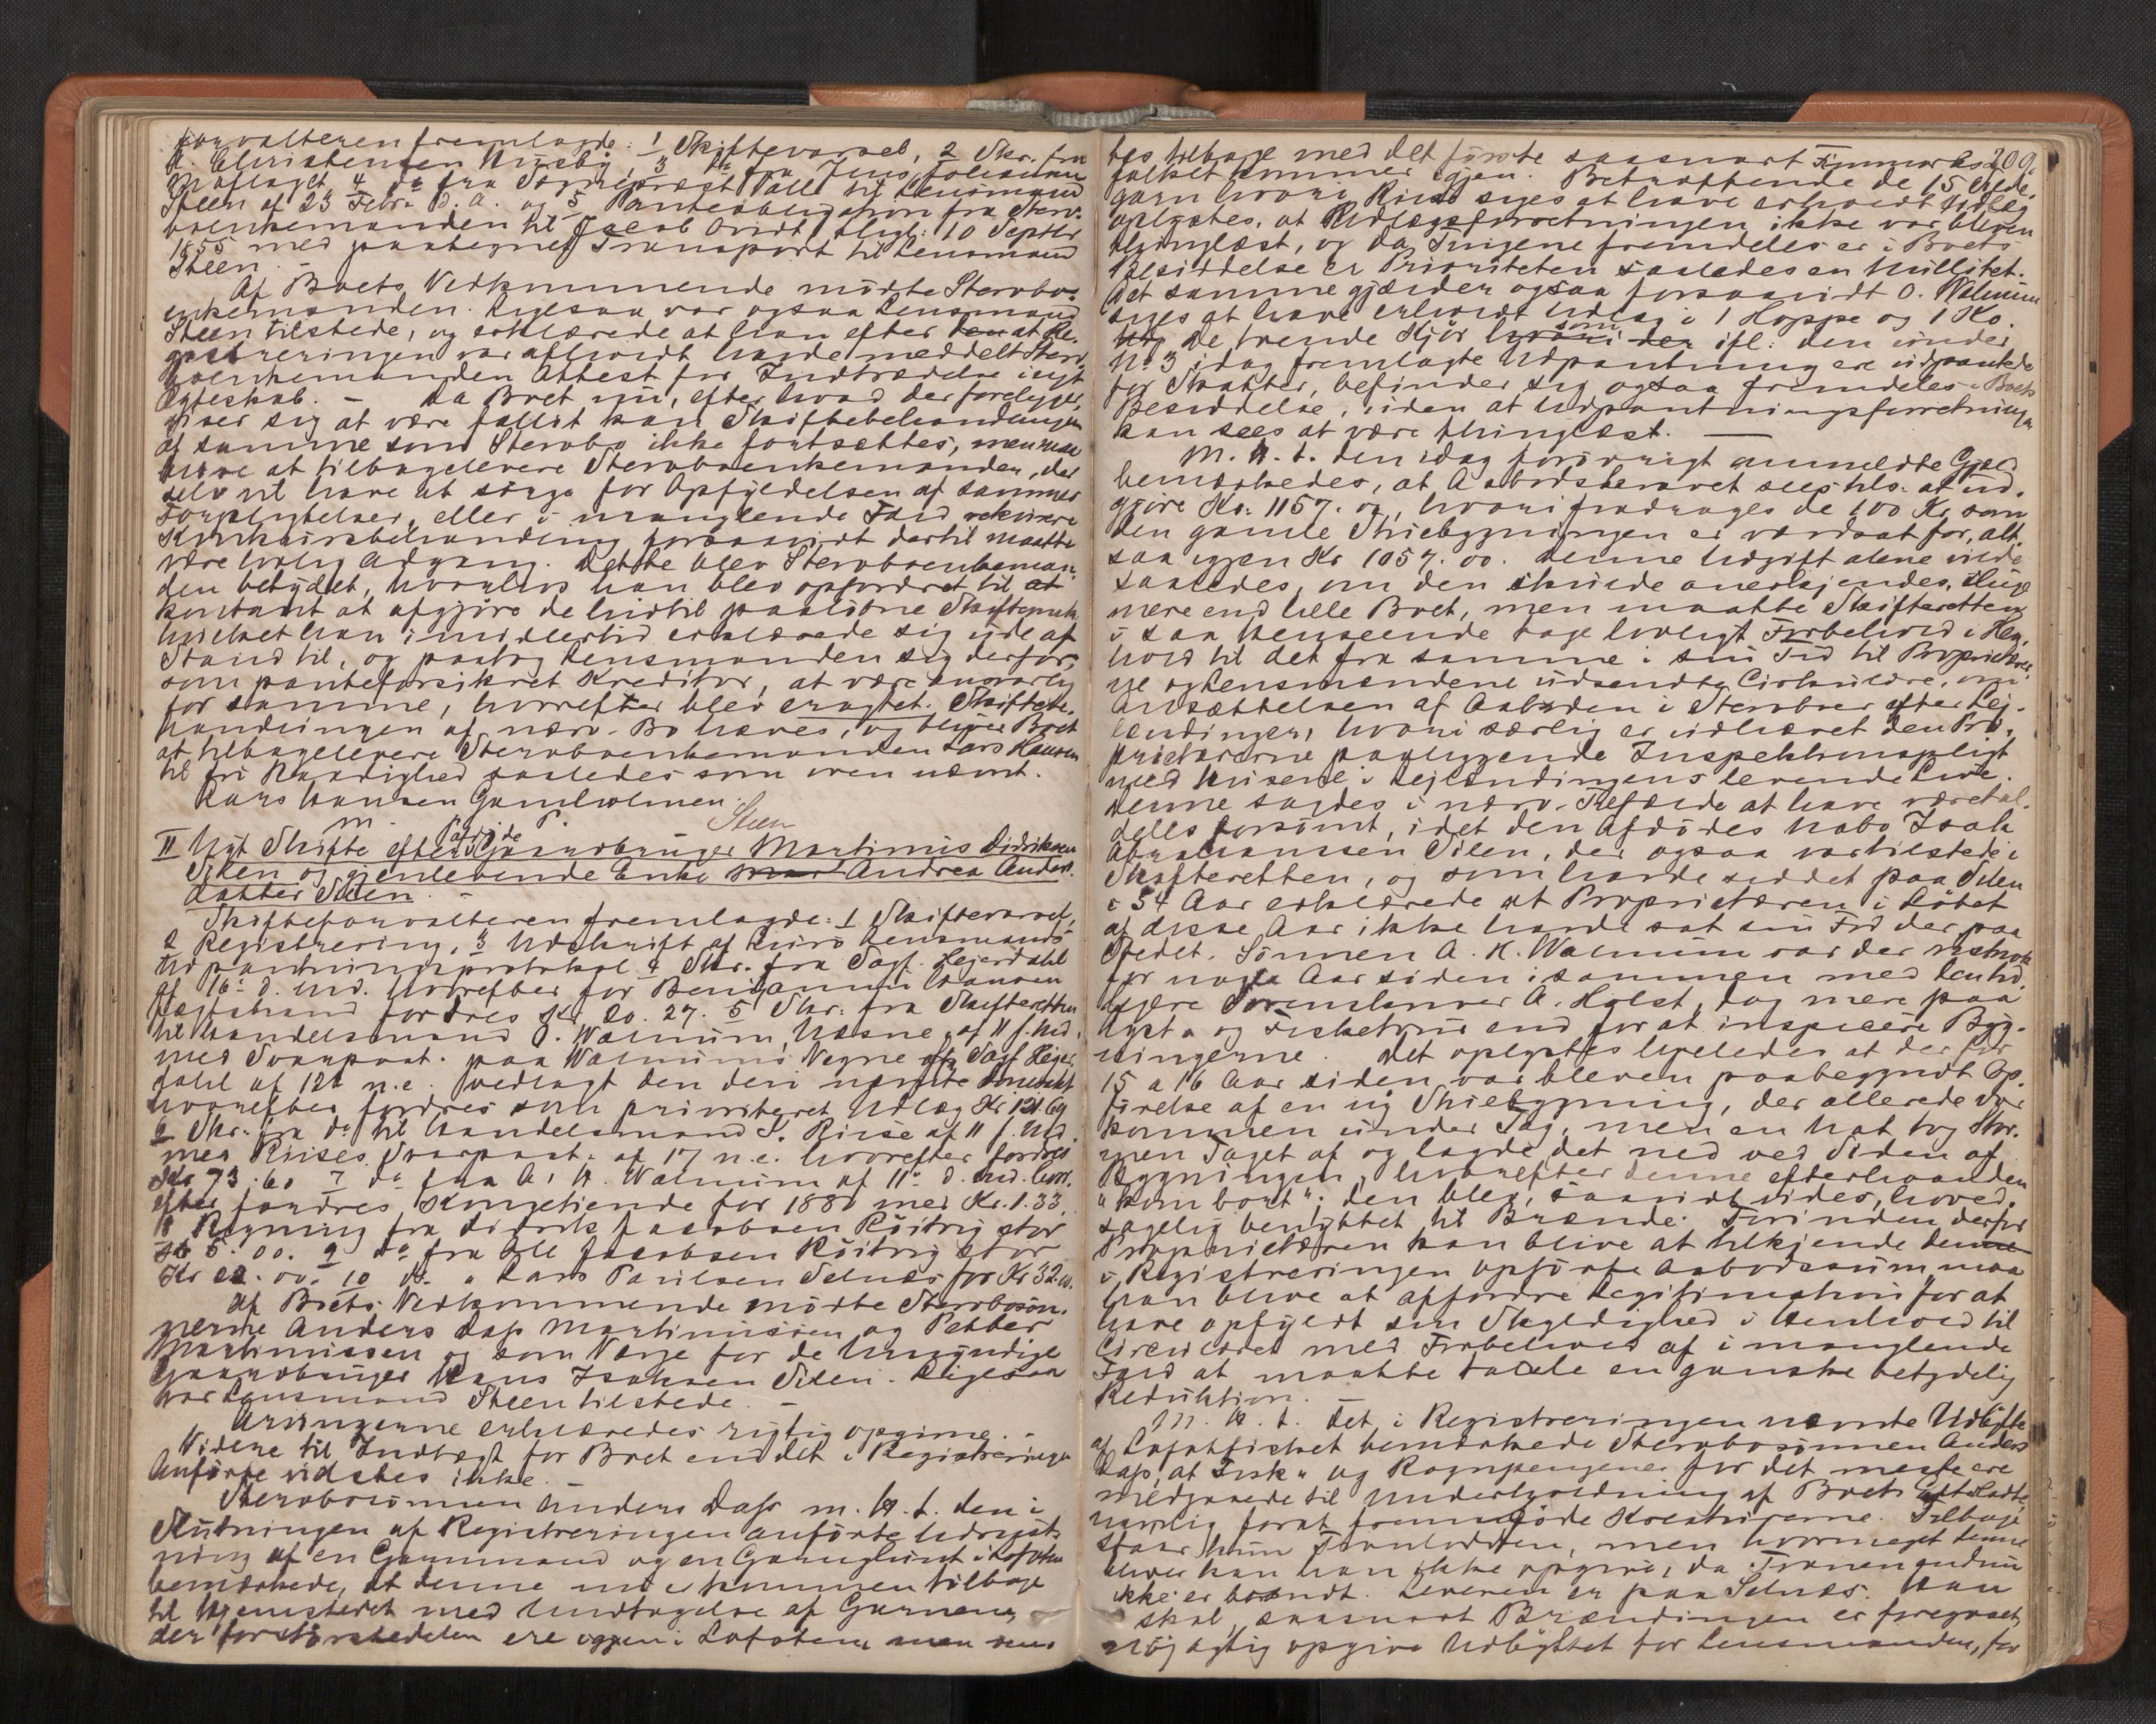 forvalteren fremlagde: 1 Skiftevarsel, 2 Skr. fra
A. Christensen Husby, 3 do fra Jens Joleidum
Maflaget 4 do fra Sogneprest Palle til Lensmand
Steen af 23 Febr. d. A. og 5 Panteobligation fra Sterv-
boenkemanden til Jacob Qvidt thgl: 10 Septbr
1855 med paategnet Transport til Lensmand
Steen. -
Af Boets Vedkommende mødte Stervbo-
enkemanden. Ligesaa var ogsaa Lensmand
Steen tilstede, og erklærede at han efter at Re-
gistreringen var afholdt havde meddelt Sterv-
boenkemanden Attest for Indtrædelse i nyt
Egteskab. - Da Boet nu, efter hvad der foreligger,
viser sig at være fallit kan Skiftebehandlingen
af samme som Stervbo ikke fortsættes, men maa
blive at tilbagelevere Stervboenkemanden, der
selv vil have at sørge for Opfyldelsen af sammes
Forpligtelser, eller i manglende Fald rekvirere
Konkursbehandling forsaavidt dertil maatte
være lovlig Adgang. Dette blev Stervboenkeman-
den betydet, hvorhos han blev opfordret til at
kontant at afgjøre de hidtil paaløbne Skifteomk.
hvilket han imidlertid erklærede sig ude af
Stand til, og paatog Lensmanden sig derfor,
som panteforsikret Kreditor, at være ansvarlig
for samme, hvorefter blev eragtet: Skiftebe-
handlingen af nærv. Bo hæves, og bliver Boet
at tilbagelevere Stervboenkemanden Lars Hansen
til fri Raadighed saaledes som oven nævnt.
Lars Hansen Gamholmen
m. P. Steen
II Nyt Skifte efter afdøde Gaardbruger Martinus Didriksen
Silen og gjenlevende Enke Andrea Anders-
datter Silen. -
Skifteforvalteren fremlagde: 1 Skiftevarsel,
2 Registrering, 3 Udskrift af Lurø Lensmands
Udpantningsprotokol 4 Skr. fra Sagf. Hejerdahl
af 16de d. Md. hvorefter for Benjamin Hansen
Ægtshand fordres Kr. 20. 27. 5 Skr. fra Skifteretten
til Handelsmand O. Walnum, Næsne, af 11 f. Md.
med Svarpaat. paa Walnums Vegne af Sagf. Hejer-
dahl af 12te n.e. vedlagt den deri nævnte Domsakt
hvorefter fordres som prioriteret Udlæg Kr 121.69
6 Skr. fra do til Handelsmand K. Riise af 11 f. Md.
med Riises Svarpaat. af 17 n.e. hvorefter fordres
Kr 73. 60 7 do fra A. H. Walnum af 11te d. Md. hvor-
efter fordres Kongetiende for 1880 med Kr. 1. 33,
8 Regning fra Didrik Jacobsen Röitvig stor
Kr 5. 00. 9 do fra Ole Jacobsen Röitvig stor
Kr 22. 00. 10 do. " Lars Paulsen Selnæs for Kr 32.00.
Af Boets Vedkommende mødte Stervbosøn-
nerne Anders Dass Martinussen og Petter
Martinussen og som Værge for de Umyndige
Gaardbruger Hans Isaksen Silen. Ligesaa
var Lensmand Steen tilstede. -
Arvingerne erklæredes rigtig opgivne. -
Videre til Indtægt for Boet end det i Registreringen
Anførte vidstes ikke. -
Stervbosønnen Anders Dass m. H. t. den i
Slutningen af Registreringen anførte Udrust-
ning af en Garnmand og en Garnglunt i Lofoten
bemærkede, at denne nu er kommen tilbage
til Hjemstedet med Undtagelse af Garnene,
der for størstedelen ere igjen i Lofoten, men ven-
209.
tes tilbage med det første saasnart Finmarks-
folket kommer igjen. Betræffende de 15 Slede-
garn hvori Riise siges at have erholdt Udlæg
oplystes, at Udlægsforretningen ikke var bleven
thinglæst, og da Tingene fremdeles er i Boets
Besiddelse er Prioriteten saaledes en Nullitet.
Det samme gjælder ogsaa forsaavidt O. Walnum
siges at have erholdt Udlæg i 1 Hoppe og 1 Ko.
De trende Kjør som ifl: den under
No 3 idag fremlagte Udpantning ere udpantede
for Skatter, befinder sig ogsaa fremdeles i Boets
Besiddelse, uden at Udpantningsforretningen
kan sees at være thinglæst. -
M. H. t. den idag forøvrigt anmeldte Gjæld
bemærkedes, at Aabodskravet sees tils. at ud-
gjøre Kr. 1157. 00, hvori fradrages de 100 Kr, som
den gamle Skiebygningen er værdsat for, alt-
saa igjen Kr 1057. 00. Denne Udgift alene vilde
saaledes, om den skulde anerkjendes, sluge
mere end hele Boet, men maatte Skifteretten
i saa Henseende tage lovligt Forbehold i Hen-
hold til det fra samme i sin Tid til Proprietær-
ne og Lensmændene udsendte Cirkulære, om
Ansættelsen af Aaboden i Stervboer efter Lej-
lændinger, hvori særlig er udhævet den Pro-
prietærerne paaliggende Inspektionspligt
med Husene i Lejlændingens levende Live.
Denne sagdes i nærv. Tilfælde at have været al-
deles forsømt, idet den Afdødes Nabo Isak
Abrahamsen Silen, der ogsaa var tilstede i
Skifteretten, og som havde siddet paa Silen
i 34 Aar erklærede at Proprietæren i Løbet
af disse Aar ikke havde sat sin Fod der paa
Stedet. Sønnen A. H. Walnum var der vistnok
for nogle Aar siden isammen med Landhd.
A. Holst, dog mere paa
Lyst- og Fisketour end for at inspicere Byg-
ningerne. Det oplystes ligeledes at der for
15 a 16 Aar siden var bleven paabegyndt Op-
førelse af en ny Skiebygning, der allerede var
kommen under Tag, men en Nat tog Stor-
men Taget af og lagde det ned ved Siden af
Bygningen, hvorefter denne efterhaanden
"kom bort"; den blev, saavidt vides, hoved-
sagelig benyttet til Brænde. Forinden derfor
Proprietæren kan blive at tilkjende denne
i Registreringen opførte Aabodssum, maa
han blive at affordre Legitimation for at
have opfyldt sin Skyldighed i Henhold til
Cirkulæret med Forbehold af i manglende
Fald at maatte taale en ganske betydelig
Reduktion. -
M. H. t. det i Registreringen nævnte Udbytte
af Lofotfisket bemærkede Stervbosønnen Anders
Dass, at Fisk- og Rognpengene for det meste ere
medgaaede til Underholdning af Boets
navnlig forat fremføde Kreaturerne. Tilbage
staar kun Tranlodden, men hvormeget denne
bliver kan han ikke opgive, da Tranen endnu
ikke er brændt. Leveren er paa Selnæs. Han
skal, saasnart Brændingen er foregaaet,
nöjagtig opgive Udbyttet for Lensmanden, for